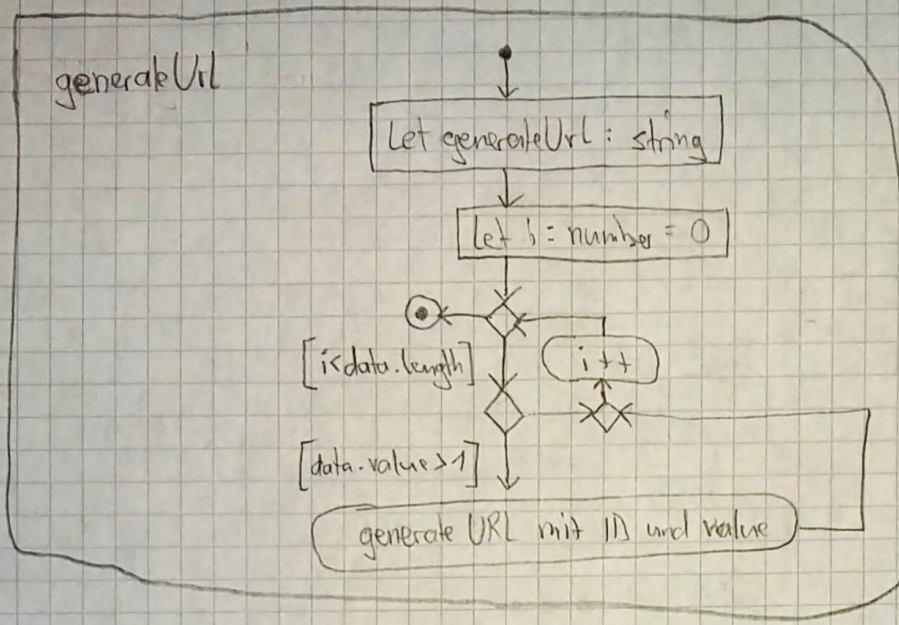 generateUrl
Let generateUrl : string
Let i = number = 0
[i<data.length]
i++
[data.value>1]
generate URL mit ID und value